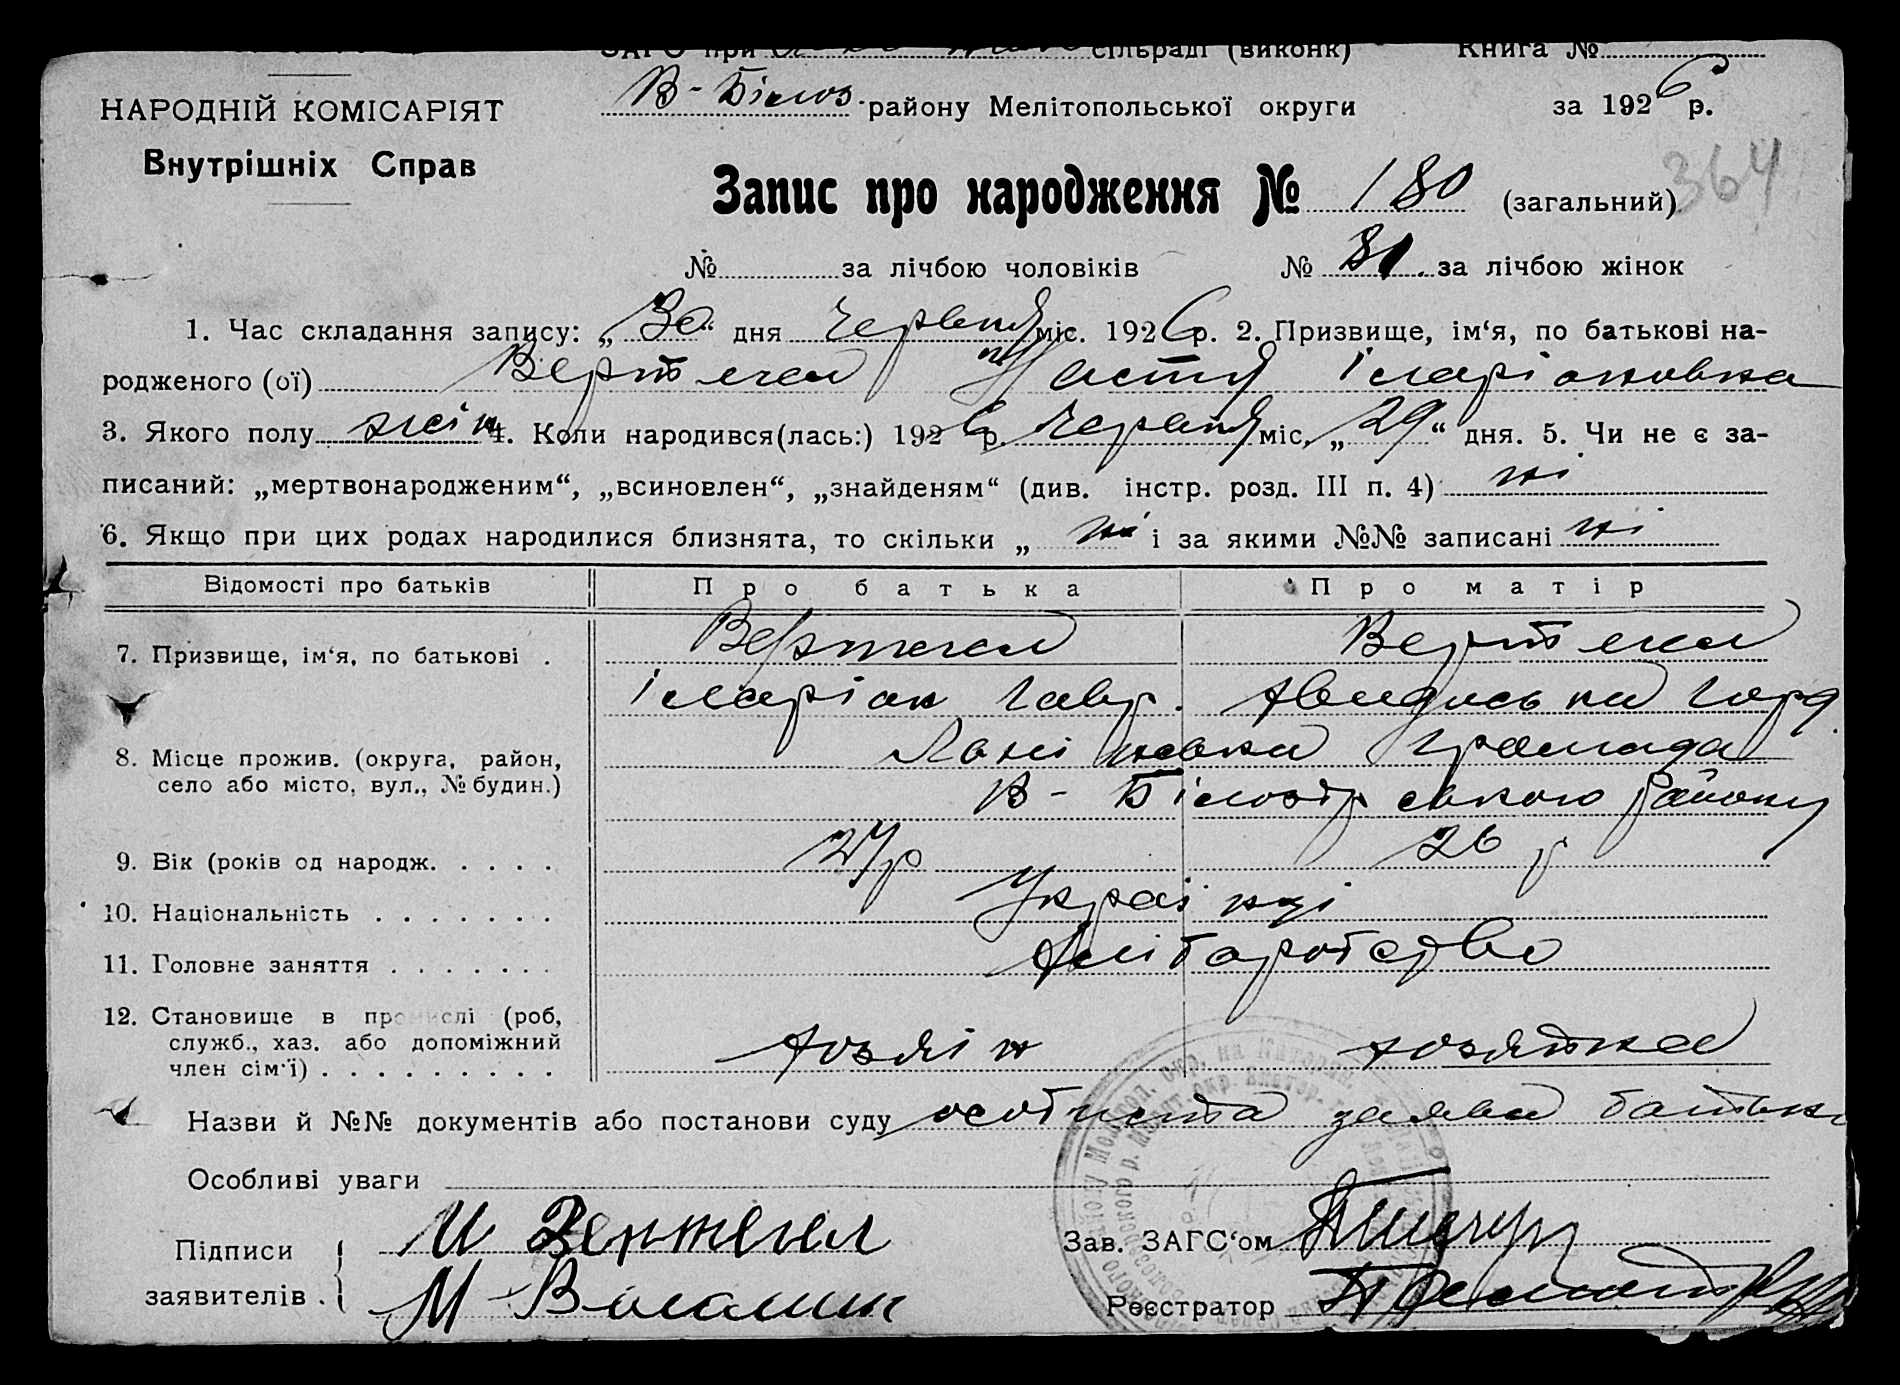 ЗАГС при сільраді (виконк) Книга №
НАРОДНІЙ КОМІСАРІЯТ
Внутрішніх Справ
В-Білоз. району Мелітопольської округи за 1926 р.
364
Запис про народження № 180 (загальний)
№ за лічбою чоловіків № 81 за лічбою жінок
1. Час складання запису: „30“ дня червня міс. 1926 р. 2. Призвище, ім‘я, по батькові на-
родженого (ої) Вертегел Настя Іларіоновна
3. Якого полу жін 4. Коли народився(лась:) 1926 р. червня міс. „29“ дня. 5. Чи не є за-
писаний: „мертвонародженим“, „всиновлен“, „знайденям“ (див. інстр. розд. III п. 4) ні
6. Якщо при цих родах народилися близнята, то скільки „ ні і за якими №№ записані ні
Відомості про батьків Про батька Про матір
7. Призвище, ім‘я, по батькові . Вертегел Вертегел
Іларіон Гавр. Горд.
8. Місце прожив. (округа, район,
село або місто, вул., № будин.) громада
В-Білозірського району
9. Вік (років од народж. . . . . 27 р 26 р
10. Національність . . . . . . . Українці
11. Головне заняття . . . . . . . Хліборобство
12. Становище в промислі (роб,
служб., хаз. або допоміжний
член сім‘ї) . . . . . . . . . хозяїн хозяйка
Назви й №№ документів або постанови суду особиста заява батька
Особливі уваги
Підписи
заявителів . И Вертегел
М Волошин
Зав. ЗАГС‘ом
Реєстратор